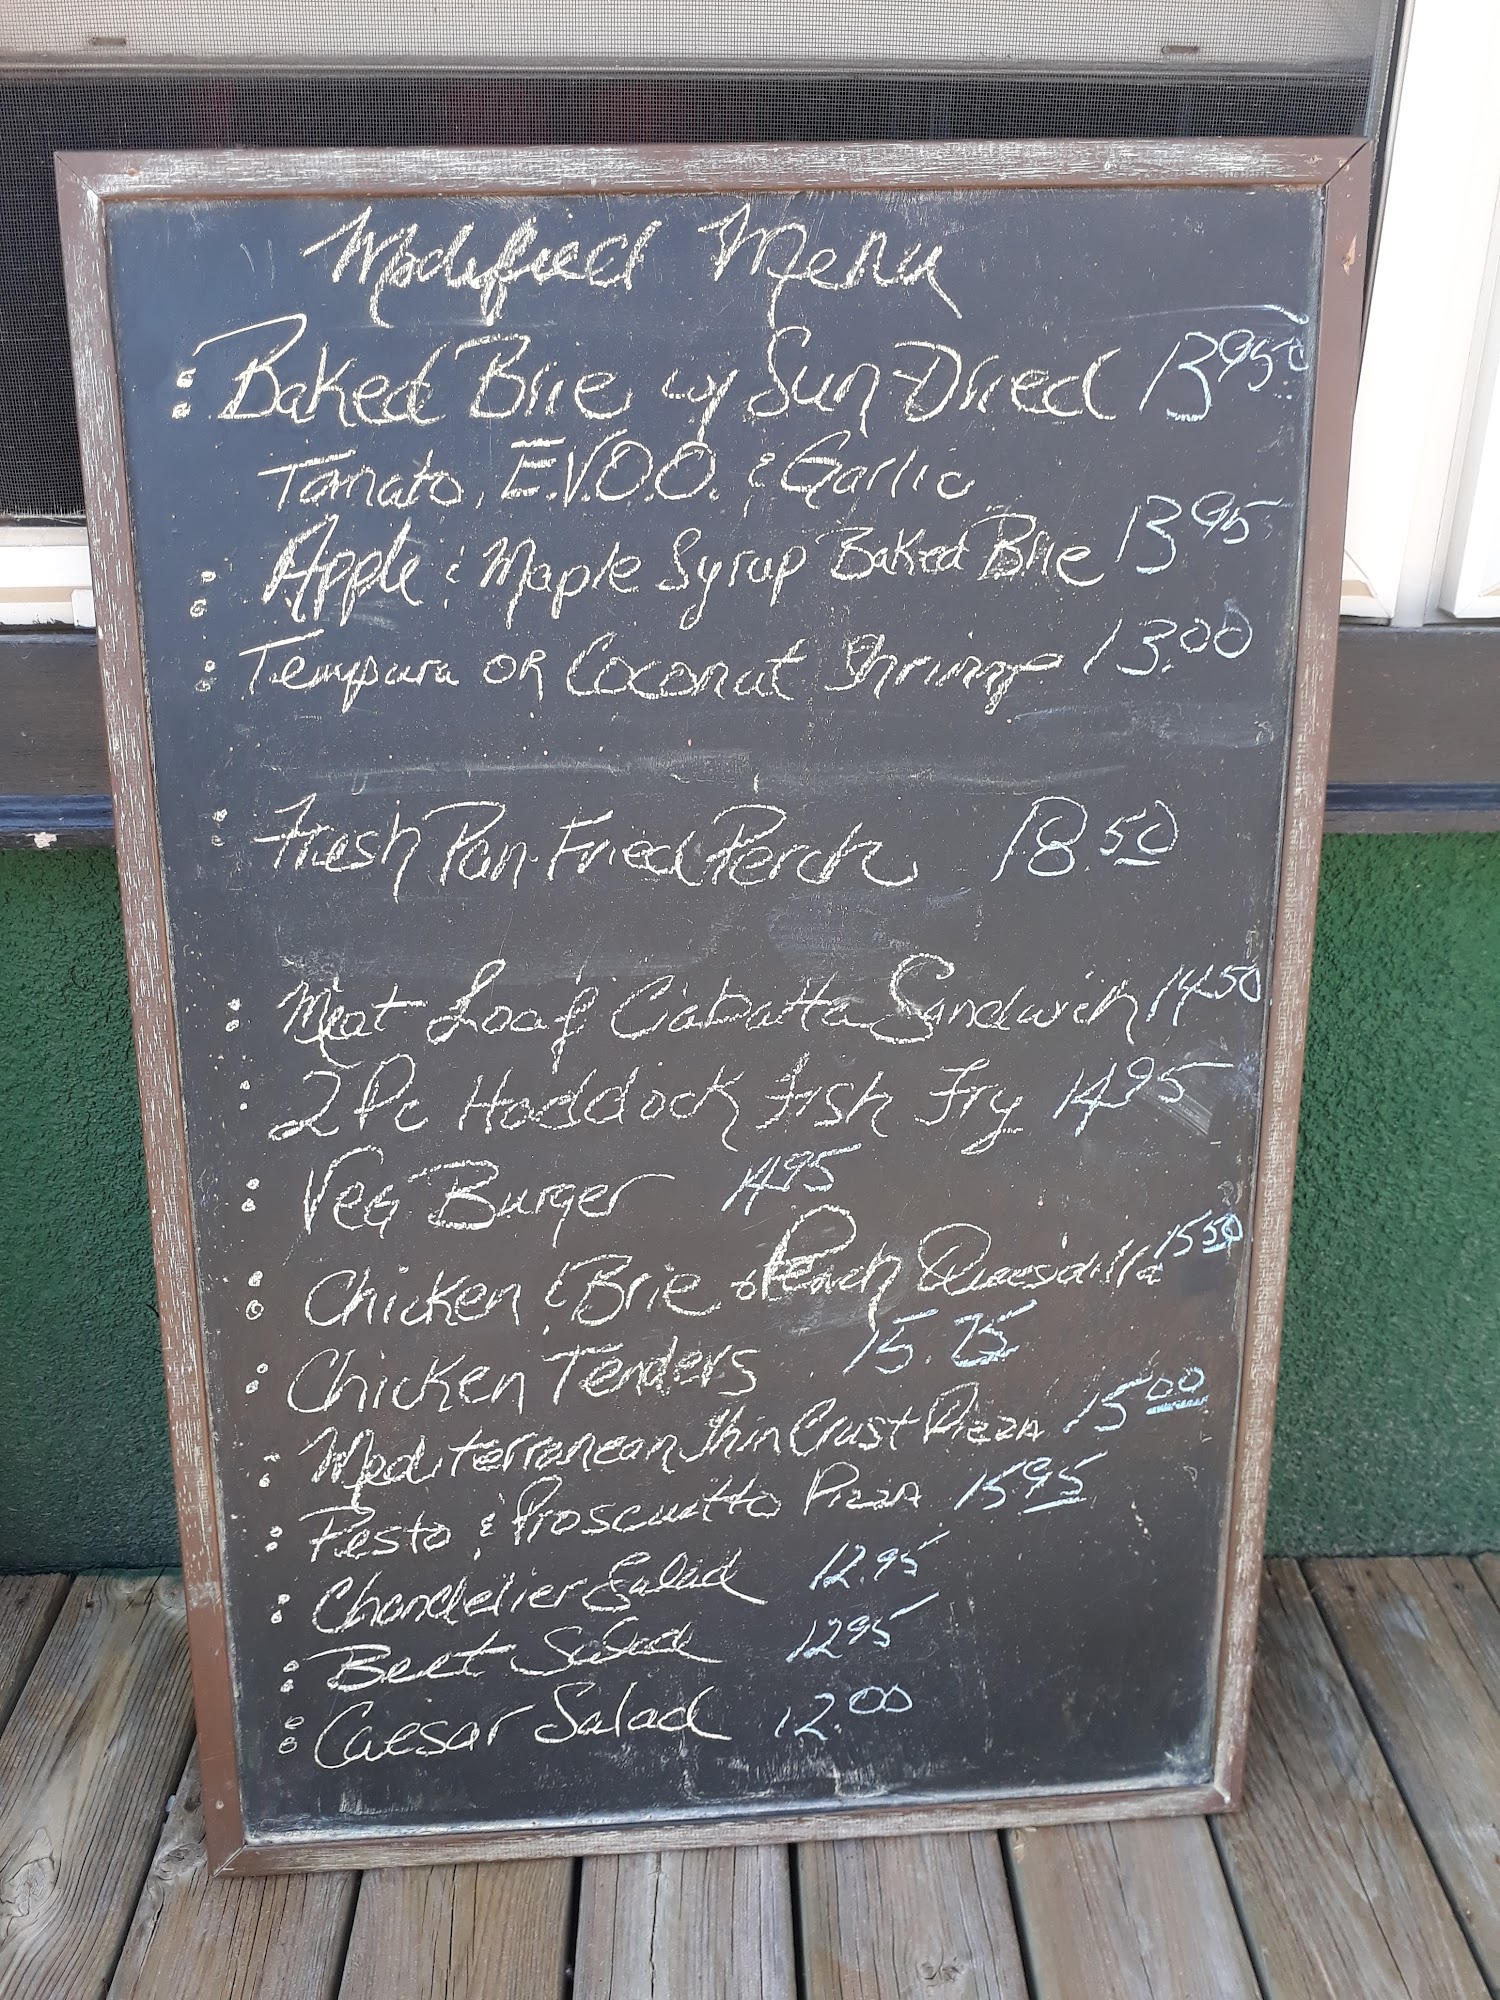 Modified Menu
: Baked Brie w/ Sun-Dried 13.95
Tomato, E.V.O.O. & Garlic
: Apple & Maple Syrup Baked Brie 13.95
: Tempura OR Coconut Shrimp 13.00
: Fresh Pan-Fried Perch 18.50
: Meat Loaf Ciabatta Sandwich 14.50
: 2 Pc Haddock Fish Fry 14.95
: Veg Burger 14.95
: Chicken & Brie & Peach Quesadilla 15.50
: Chicken Tenders 15.75
: Mediterranean Thin Crust Pizza 15.00
: Pesto & Proscuitto Pizza 15.95
: Chandelier Salad 12.95
: Beet Salad 12.95
: Caesar Salad 12.00